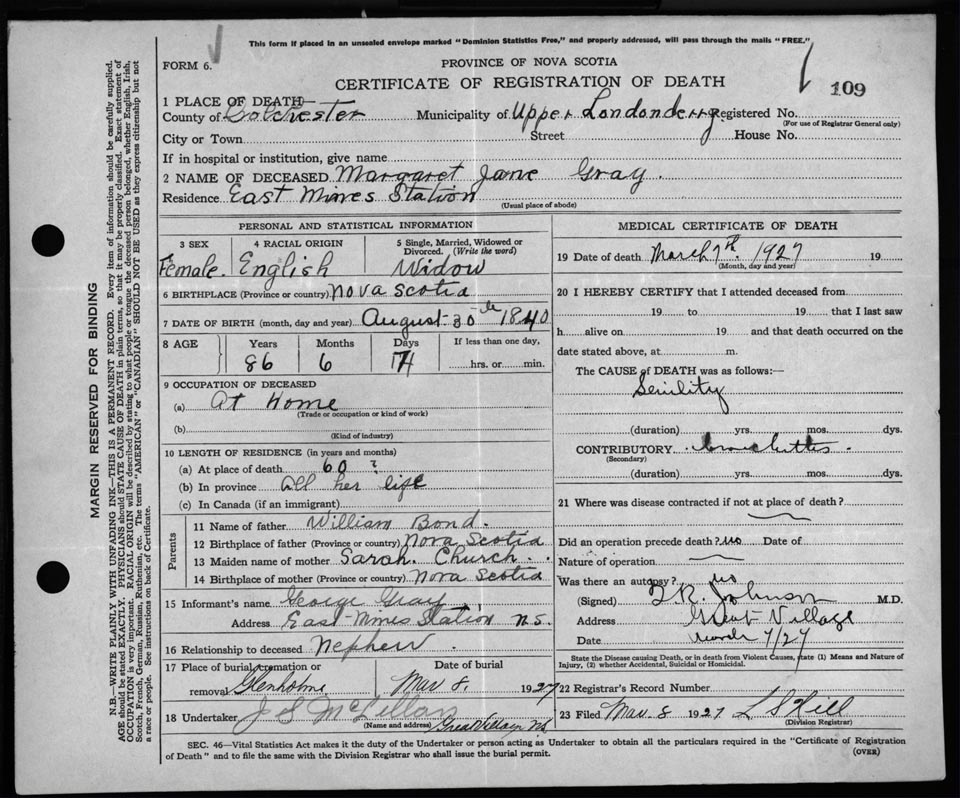 This form if placed in an unsealed envelope marked "Dominion Statistics Free," and properly addressed, will pass through the mails "FREE."
FORM 6.
PROVINCE OF NOVA SCOTIA
CERTIFICATE OF REGISTRATION OF DEATH
109
1 PLACE OF DEATH—
County of Colchester Municipality of Upper Londonderry Registered No.
(For use of Registrar General only)
City or Town Street House No.
If in hospital or institution, give name
2 NAME OF DECEASED Margaret Jane Gray.
Residence East Mines Station
(Usual place of abode)
PERSONAL AND STATISTICAL INFORMATION
3 SEX 4 RACIAL ORIGIN 5 Single, Married, Widowed or Divorced. (Write the word)
Female. English Widow
6 BIRTHPLACE (Province or country) Nova Scotia
7 DATE OF BIRTH (month, day and year) August 30th 1840
8 AGE Years Months Days If less than one day,
86 6 hrs. or min.
9 OCCUPATION OF DECEASED
(a) At Home
(Trade or occupation or kind of work)
(b)
(Kind of industry)
10 LENGTH OF RESIDENCE (in years and months)
(a) At place of death 60 ?
(b) In province All her life
(c) In Canada (if an immigrant)
Parents
11 Name of father William Bond.
12 Birthplace of father (Province or country) Nova Scotia
13 Maiden name of mother Sarah. Church.
14 Birthplace of mother (Province or country) Nova Scotia
15 Informant's name George Gray
Address East Mines Station N.S.
16 Relationship to deceased Nephew.
17 Place of burial, cremation or removal Glenholme Date of burial Mar 8. 1927
18 Undertaker J S McLellan Great Village NS
(Name and address)
MEDICAL CERTIFICATE OF DEATH
19 Date of death March 7th. 1927 19
(Month, day and year)
20 I HEREBY CERTIFY that I attended deceased from
19 to 19 that I last saw
h alive on 19 and that death occurred on the
date stated above, at m.
The CAUSE of DEATH was as follows:—
Senility
(duration) yrs. mos. dys.
CONTRIBUTORY bronchitis.
(Secondary)
(duration) yrs. mos. dys.
21 Where was disease contracted if not at place of death?
Did an operation precede death? no Date of
Nature of operation
Was there an autopsy? no
(Signed) Johnson M.D.
Address Great Village
Date March 7/27
State the Disease causing Death, or in death from Violent Causes, state (1) Means and Nature of Injury, (2) whether Accidental, Suicidal or Homicidal.
22 Registrar's Record Number
23 Filed Mar. 8 1927 L S Hill
(Division Registrar)
SEC. 46—Vital Statistics Act makes it the duty of the Undertaker or person acting as Undertaker to obtain all the particulars required in the "Certificate of Registration
of Death" and to file the same with the Division Registrar who shall issue the burial permit.
(OVER)
MARGIN RESERVED FOR BINDING
N.B.—WRITE PLAINLY WITH UNFADING INK—THIS IS A PERMANENT RECORD. Every item of information should be carefully supplied.
AGE should be stated EXACTLY. PHYSICIANS should STATE CAUSE OF DEATH in plain terms, so that it may be properly classified. Exact statement of
OCCUPATION is very important. RACIAL ORIGIN will be described by stating to what people or tongue the deceased person belonged, whether English, Irish,
Scotch, French, German, Russian, Ruthenian, etc. The terms "AMERICAN" or "CANADIAN" SHOULD NOT BE USED as they express citizenship but not
a race or people. See instructions on back of Certificate.